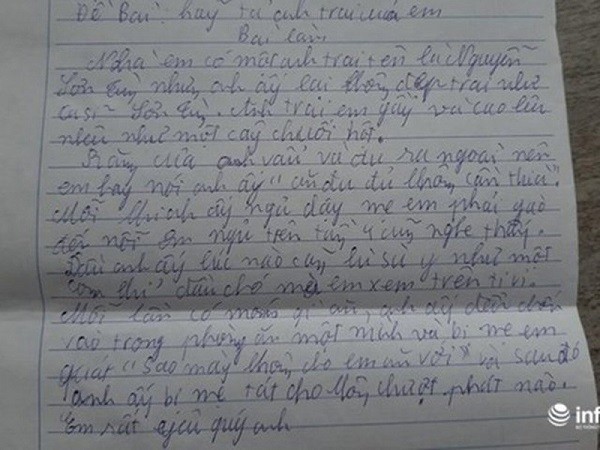 Đề Bài: hãy tả anh trai của em
Bài làm
Nhà em có một anh trai tên là Nguyễn
Sơn Tùng nhưng anh ấy lại không đẹp trai như
ca sĩ Sơn Tùng. Anh trai em gầy và cao lêu
nghêu như một cây chuối hột.
Răng của anh vẩu và đưa ra ngoài nên
em hay nói anh ấy "ăn đu đủ không cần thìa".
Mỗi khi anh ấy ngủ dậy mẹ em phải gào
đến nỗi em ngủ trên tầng 4 cũng nghe thấy.
Đầu anh ấy lúc nào cũng lù sù y như một
con đầu chó mẹ em xem trên ti vi.
Mỗi lần có món gì ăn, anh ấy đều
vào trong phòng ăn một mình và bị mẹ em
quát "sao mày không cho em ăn với" và sau đó
anh ấy bị mẹ tát cho không trượt phát nào.
Em rất quý anh
inf